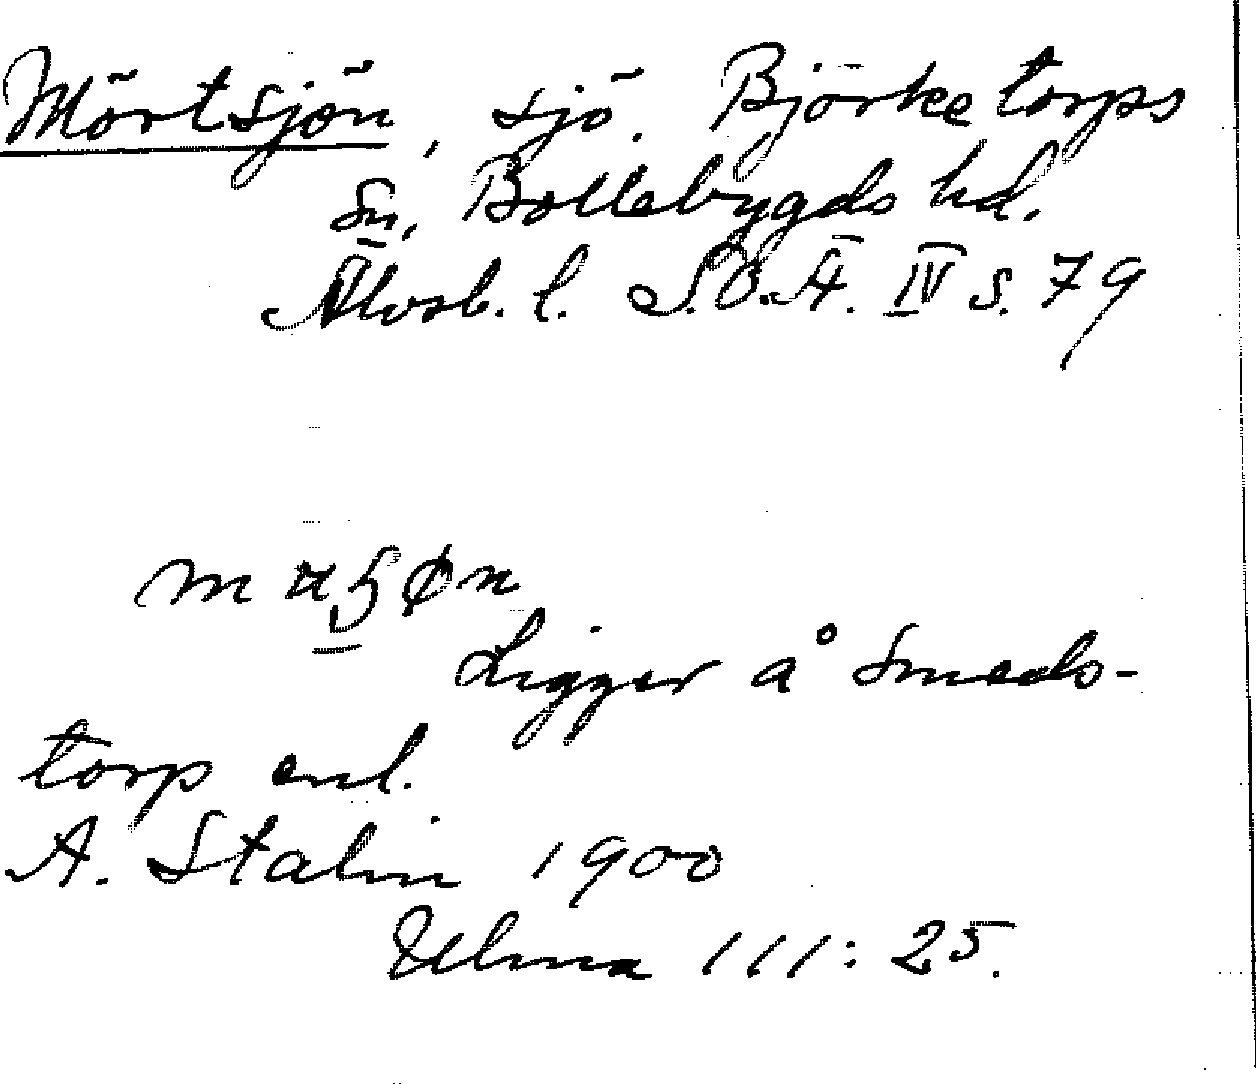 Mörtsjön, sjö. Björketorps
sn, Bollebygds hd.
Älvsb. l. S.O.Ä. IV s. 79
Ligger å Smeds-
torp enl.
A. Stalin 1900
Ulma 111:25.